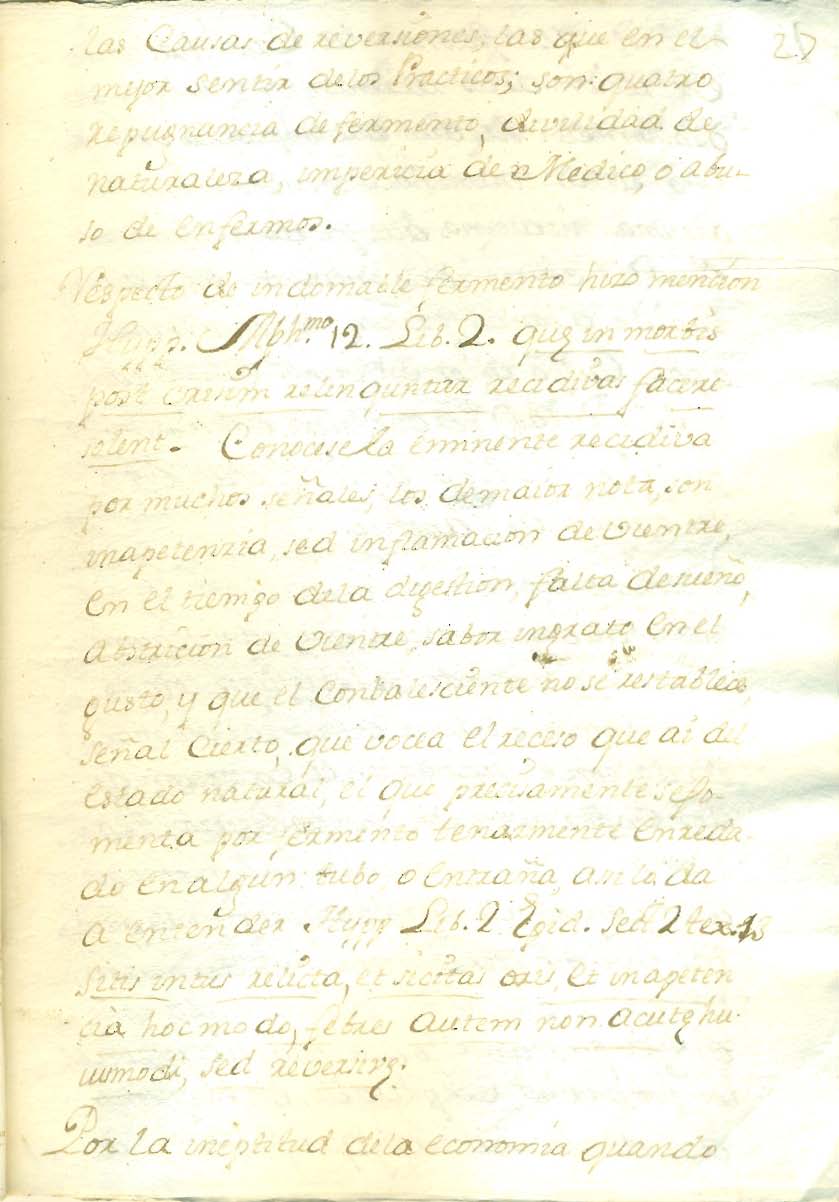 las Causas de reversiones, las que en el
mejor sentir de los Practicos; son: quatro
repugnancia de fermento, devilidad de
naturaleza, impericia de Medico, o abu-
so de enfermos.
Respecto de indomable fermento hizo mention
Hypp. Aph.mo 12. Lib. 2. quę in morbis
post crisim relinquntur recidivas facere
solent. Conocese la eminente recediva
por muchos señales, los de maior nota, son
inapetenzia, sed inflamacion de vientre,
en el tiempo de la digestion, falta de sueño,
abstricion de vientre, sabor ingrato en el
gusto, y que el Combalesciente no se restablece,
señal cierto, que vocea el receso que ai del
estado natural, el que precisamente se fo-
menta por fermento tenazmente enreda
do en algun tubo, o entraña, asi lo da
a entender Hypp Lib. 2 Epid. Sect 2 tex.
Sitis intus relicta, et sicitas oris, et inapeten
cia hoc modo, febres autem non acutę hu-
iusmodi, sed reversivę.
Por la ineptitud de la economia quando